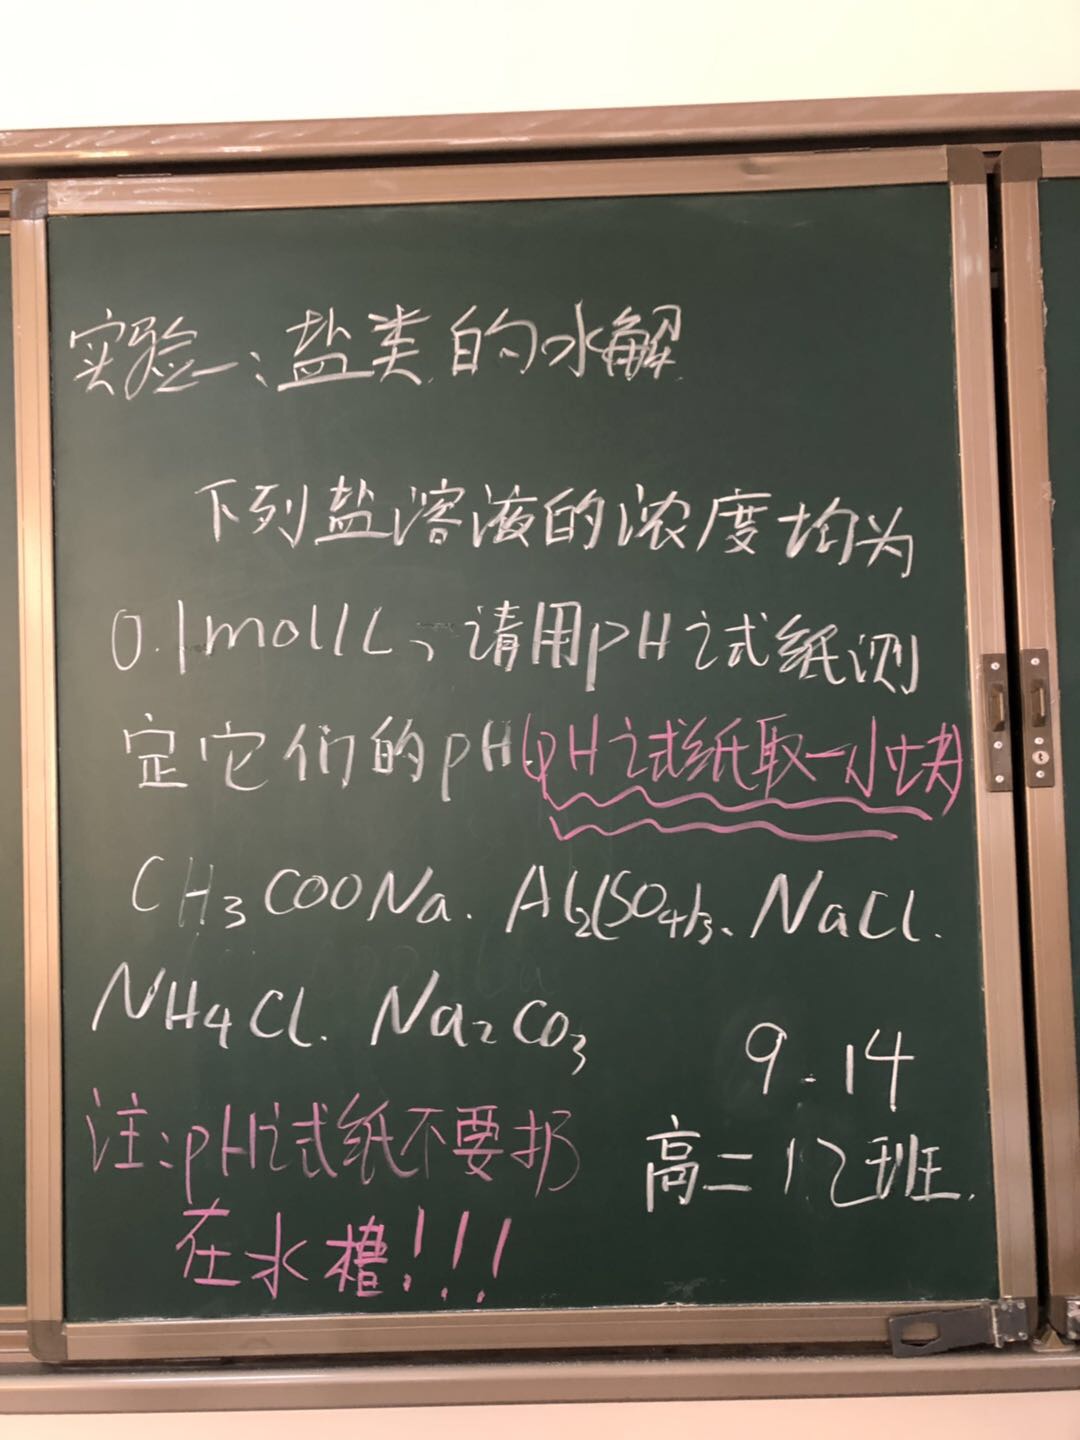 实验一:盐类的水解
下列盐溶液的浓度均为
0.1mol/L、请用pH试纸测
定它们的pH(pH试纸取一小块)
CH₃COONa. Al₂(SO₄)₃、NaCl.
NH₄Cl. Na₂CO₃
9.14
注:pH试纸不要扔
高二12班.
在水槽!!!